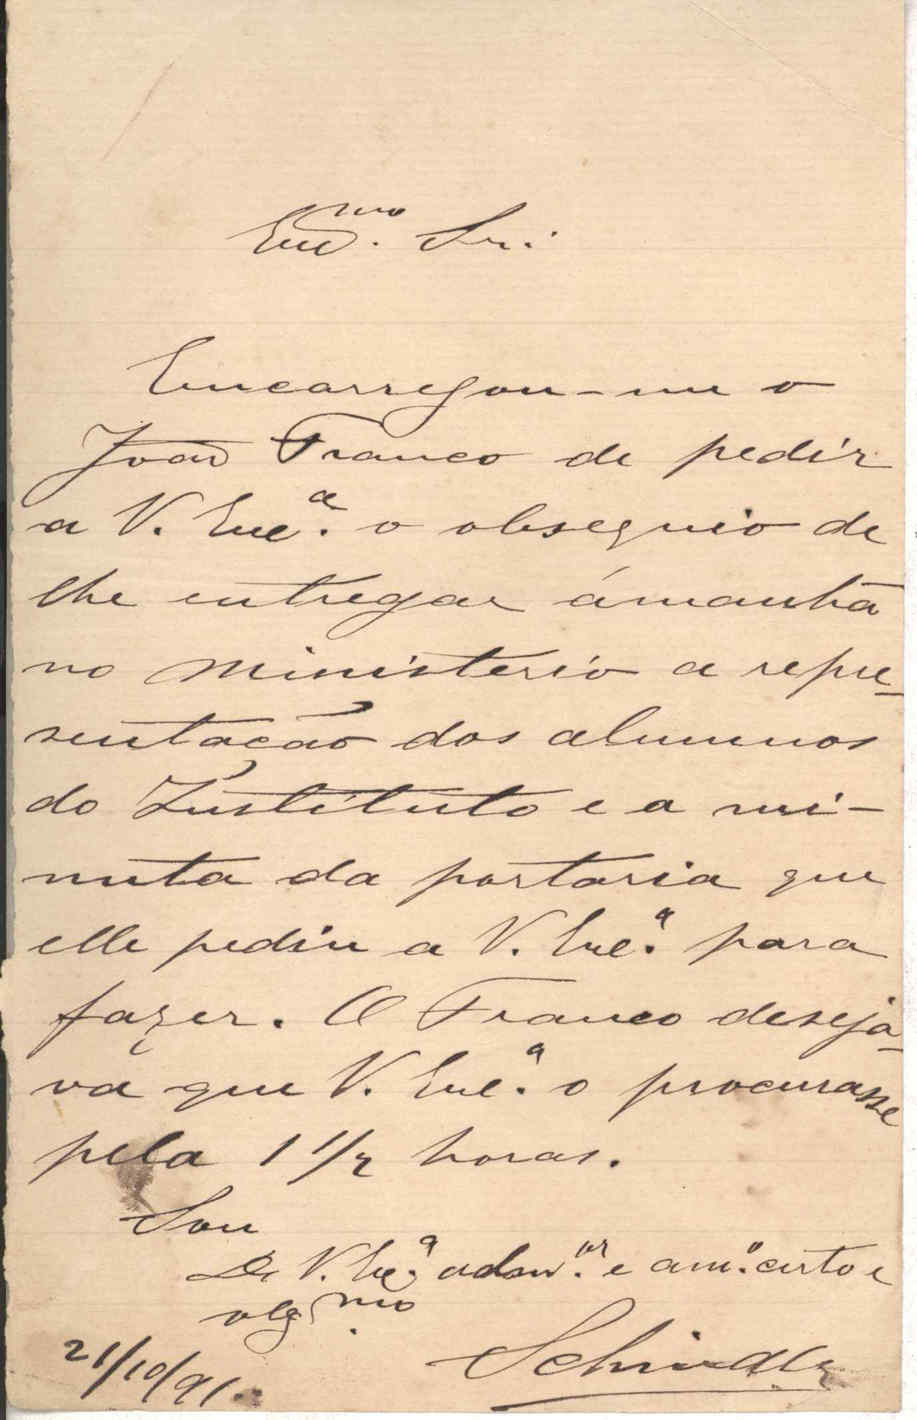 Exc.mo Snr.
Encarregou-me o
João Franco de pedir
a V. Exc.a o obsequio de
lhe entregar ámanhã
no ministerio a repre-
sentação dos alumnos
do Instituto e a mi-
nuta da portaria que
elle pediu a V. Exc.a para
fazer. O Franco deseja-
va que V. Exc.a o procurasse
pela 1 1/2 horas.
Sou
De V. Exc.a adm.or e am.o certo e
obg.mo
21/10/91. Schindler